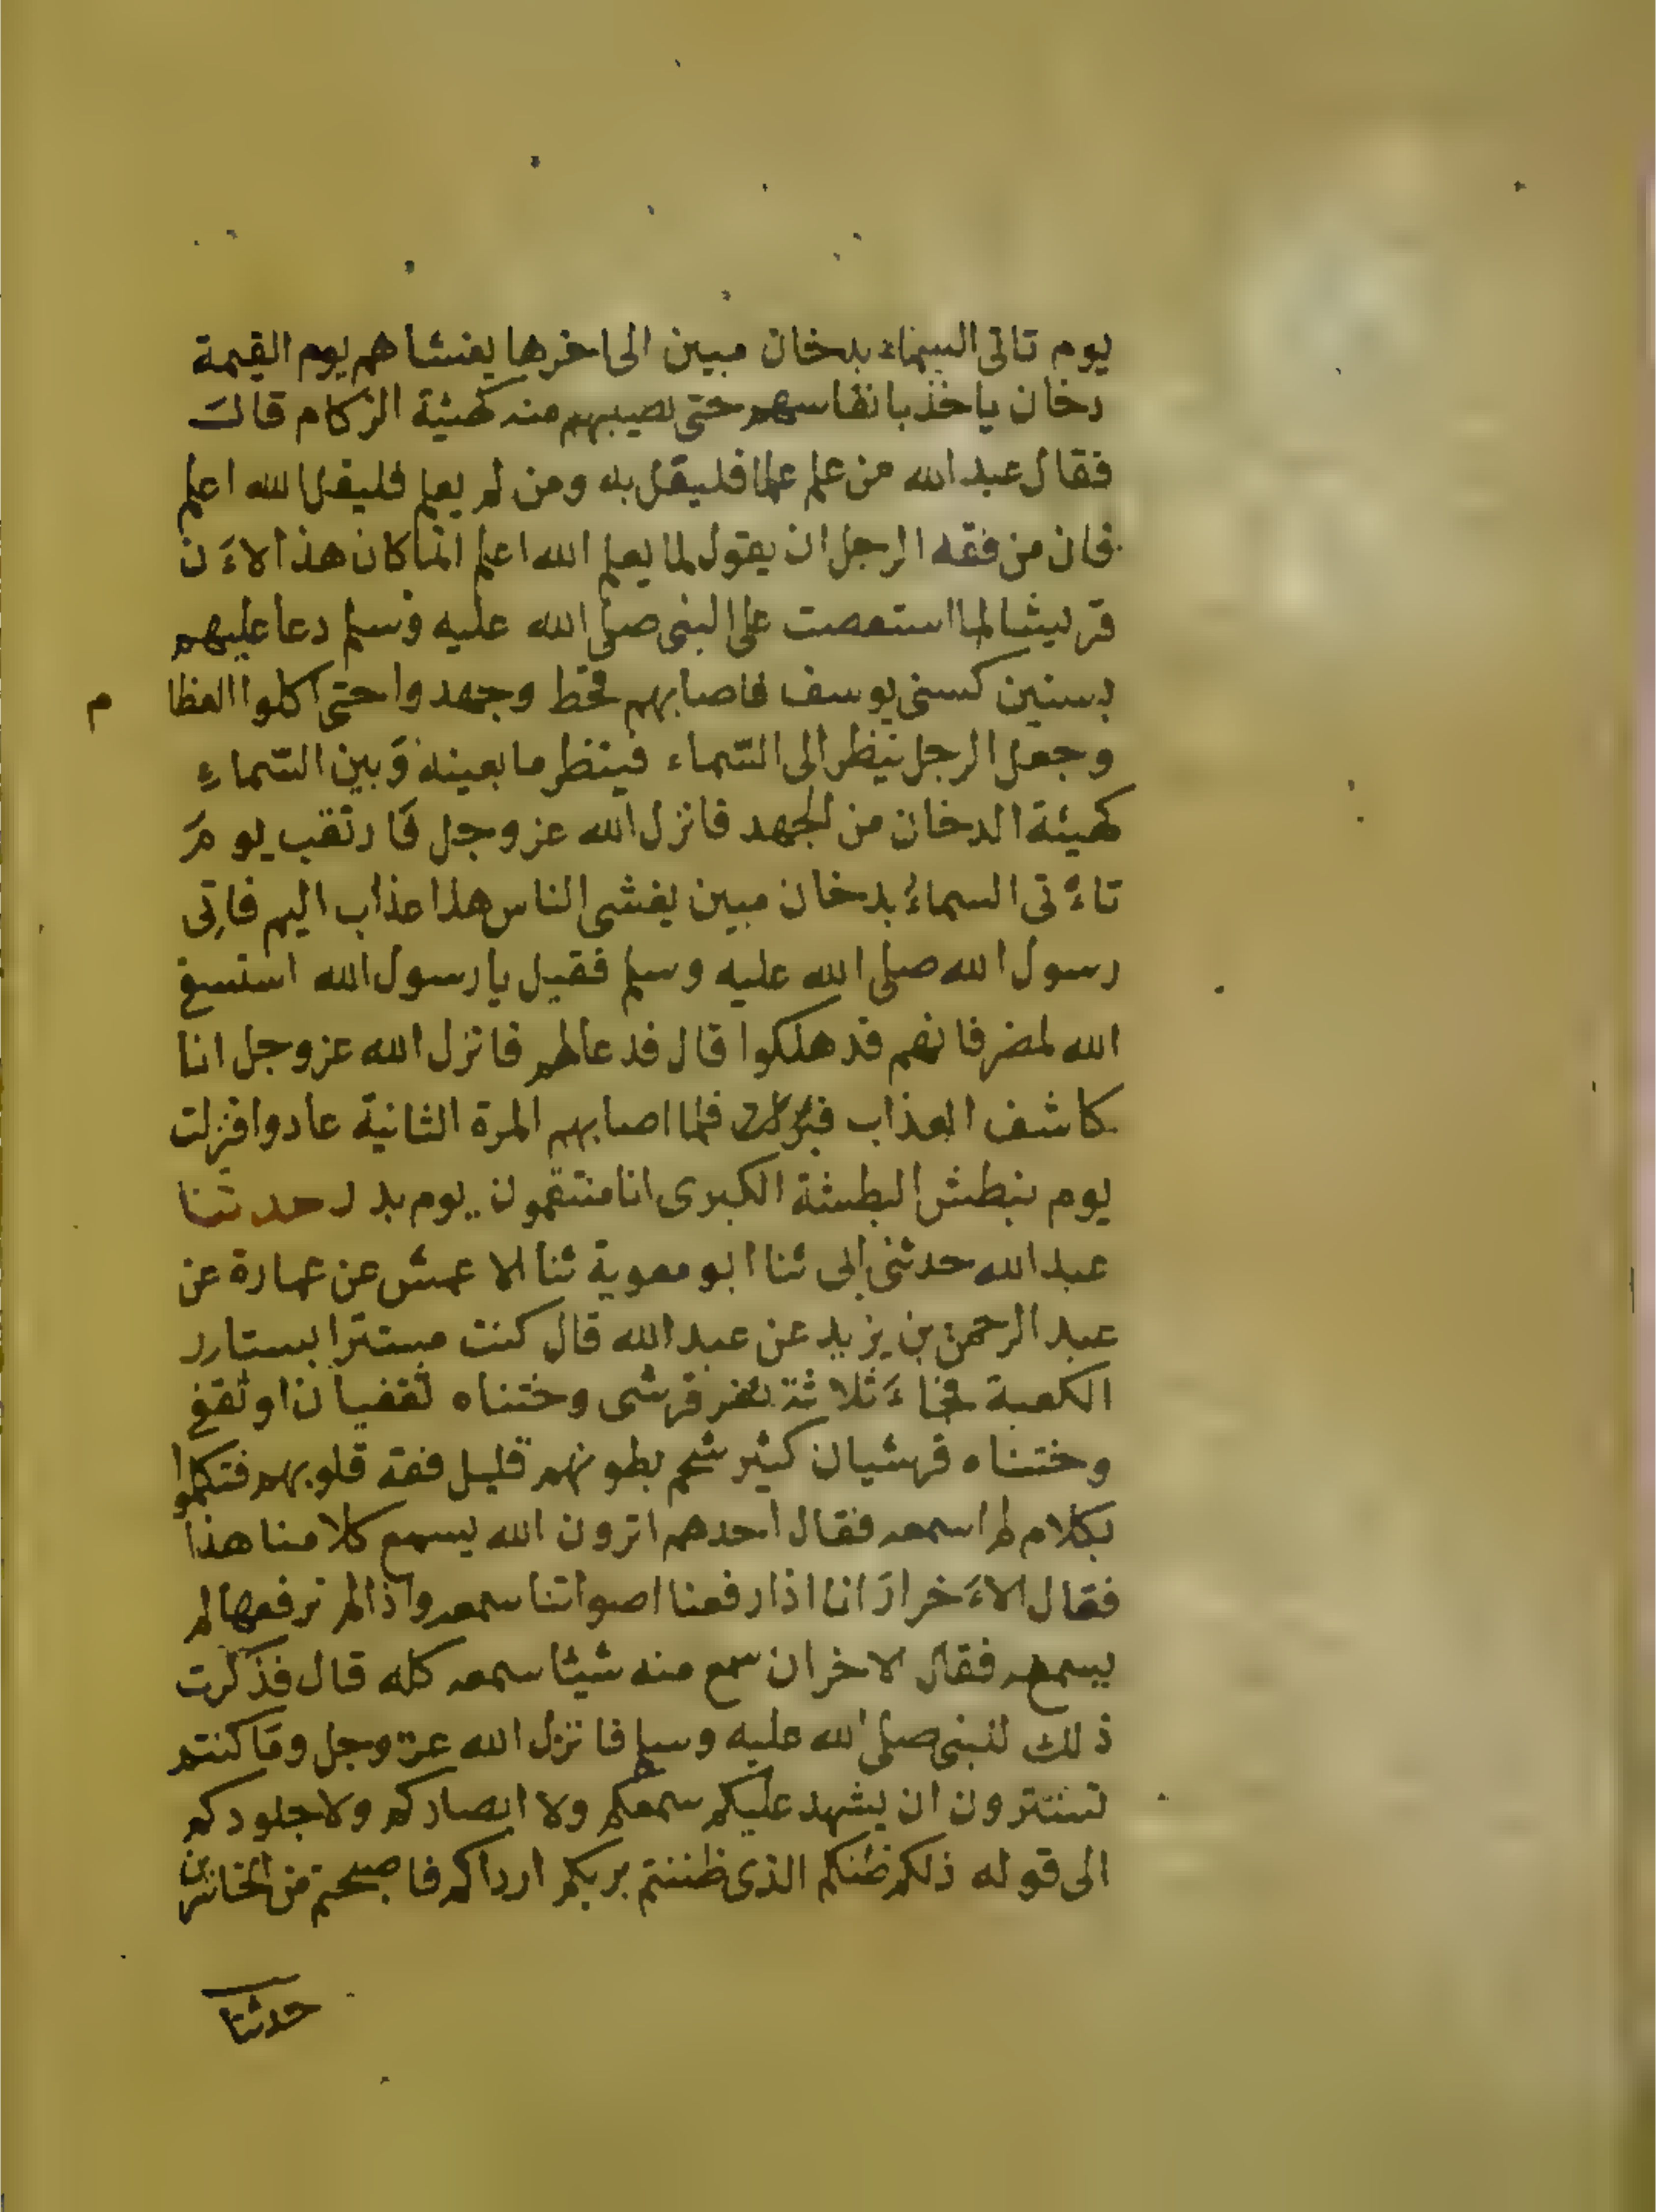 يوم تاتى السماء بدخان مبين الى اخرها يغشاهم يوم القيمة
دخان ياخذ بانفاسهم حتى يصيبهم منه كهيئة الزكام قال
فقال عبد الله من علم علما فليقل به ومن لم يعلم فليقل الله اعلم
فان من فقه الرجل ان يقول لما يعلم الله اعلم انما كان هذا الاءَن
قريشا لما استعصت على النبى صلى الله عليه وسلم دعا عليهم
بسنين كسنى يوسف فاصابهم قحط وجهد واحتى اكلوا العظا م
وجعل الرجل ينظر الى السّماء فينظر ما بعينه وَبين السّماءِ
كهيئة الدخان من الجهد فانزل الله عز وجل فَارتقب يو مَ
تاءْتى السماءُ بدخان مبين يغشى الناس هذا عذاب اليم فاتِى
رسول الله صلى الله عليه وسلم فقيل يا رسول الله استسق
الله لمضر فانهم قد هلكوا قال فدعا لهم فانزل الله عز وجل انا
كاشف العذاب فلما اصابهم المرة الثانية عادوا فنزلت
يوم نبطش البطشة الكبرى انا منتقمون يوم بدر حدثنا
عبد الله حدثنى ابى ثنا ابو معوية ثنا الاعمش عن عمارة عن
عبد الرحمن بن يزيد عن عبد الله قال كنت مستترا بستارر
الكعبة فجاءَ ثلاثة نفر قرشى وختناه ثقفيان او ثقفى
وختناه قرشيان كثير شحم بطونهم قليل فقه قلوبهم فتكلموا
بكلام لم اسمعه فقال احدهم اترون الله يسمع كلامنا هذا
فقال الاءَخر ارَانا اذا رفعنا اصواتنا سمعه واذا لم نرفعها لم
يسمعه فقال الاخر ان سمع منه شيئا سمعه كله قال فذكرت
ذلك للنبى صلى الله عليه وسلم فانزل الله عز وجل ومَا كنتم
تستترون ان يشهد عليكم سمعكم ولا ابصاركم ولا جلودكم
الى قوله ذلكم ظنكم الذى ظننتم بربكم ارداكم فاصبحتم من الخاسرين
حدثنا